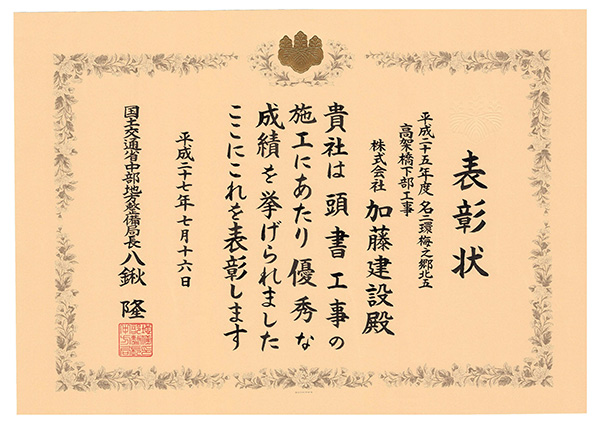 表彰状
平成二十五年度 名二環梅之郷北五
高架橋下部工事
株式会社 加藤建設殿
貴社は頭書工事の
施工にあたり優秀な
成績を挙げられました
ここにこれを表彰します
平成二十七年七月十六日
国土交通省中部地方整備局長 八鍬 隆